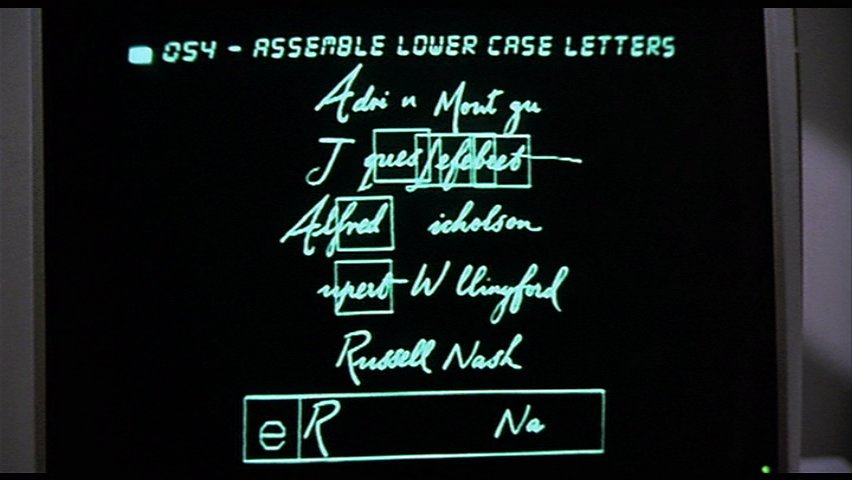 054 - ASSEMBLE LOWER CASE LETTERS
Adri n Mont gu
J ques Lefebert
Alfred icholson
upert W llingford
Russell Nash
e R Na